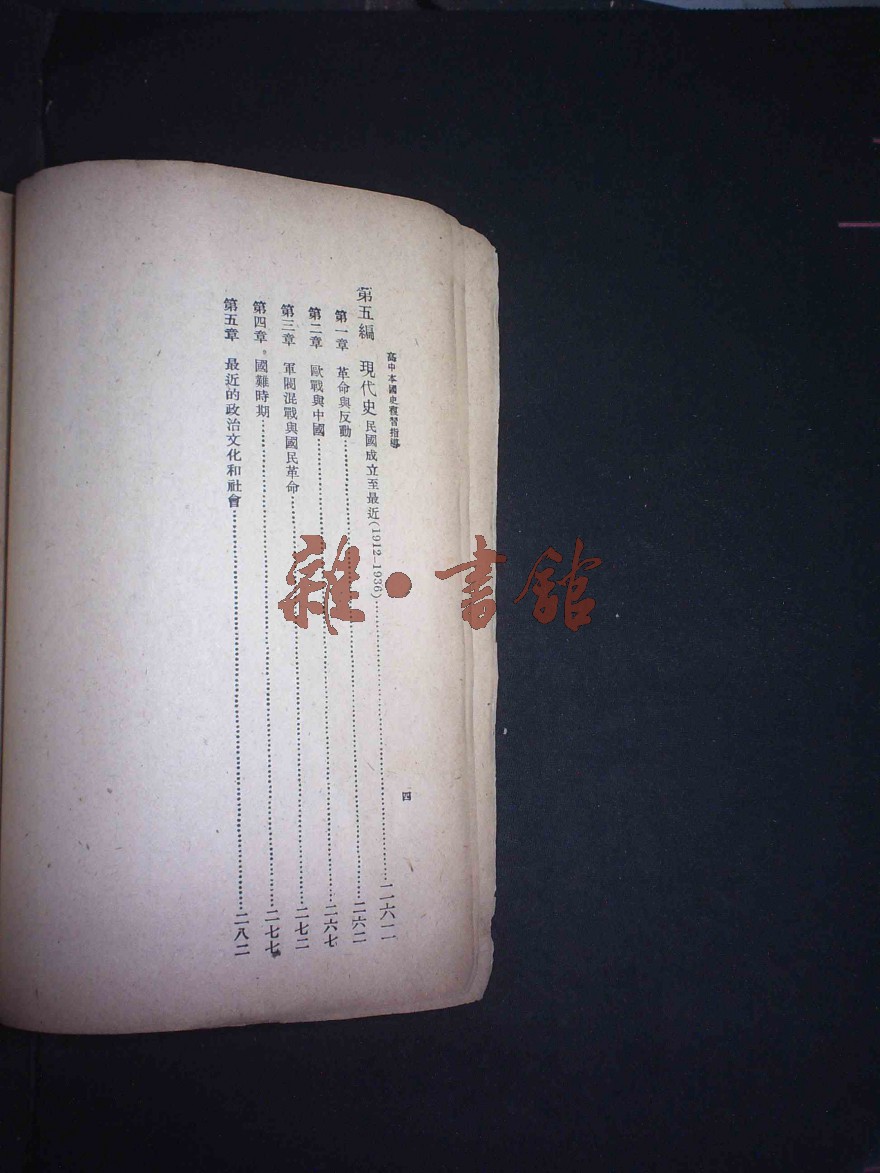 高中本國史複習指導
四
第五編 現代史 民國成立至最近(1912—1936)……二六二
第一章 革命與反動……二六二
第二章 歐戰與中國……二六七
第三章 軍閥混戰與國民革命……二七二
第四章 國難時期……二七七
第五章 最近的政治文化和社會……二八二
雜·書館